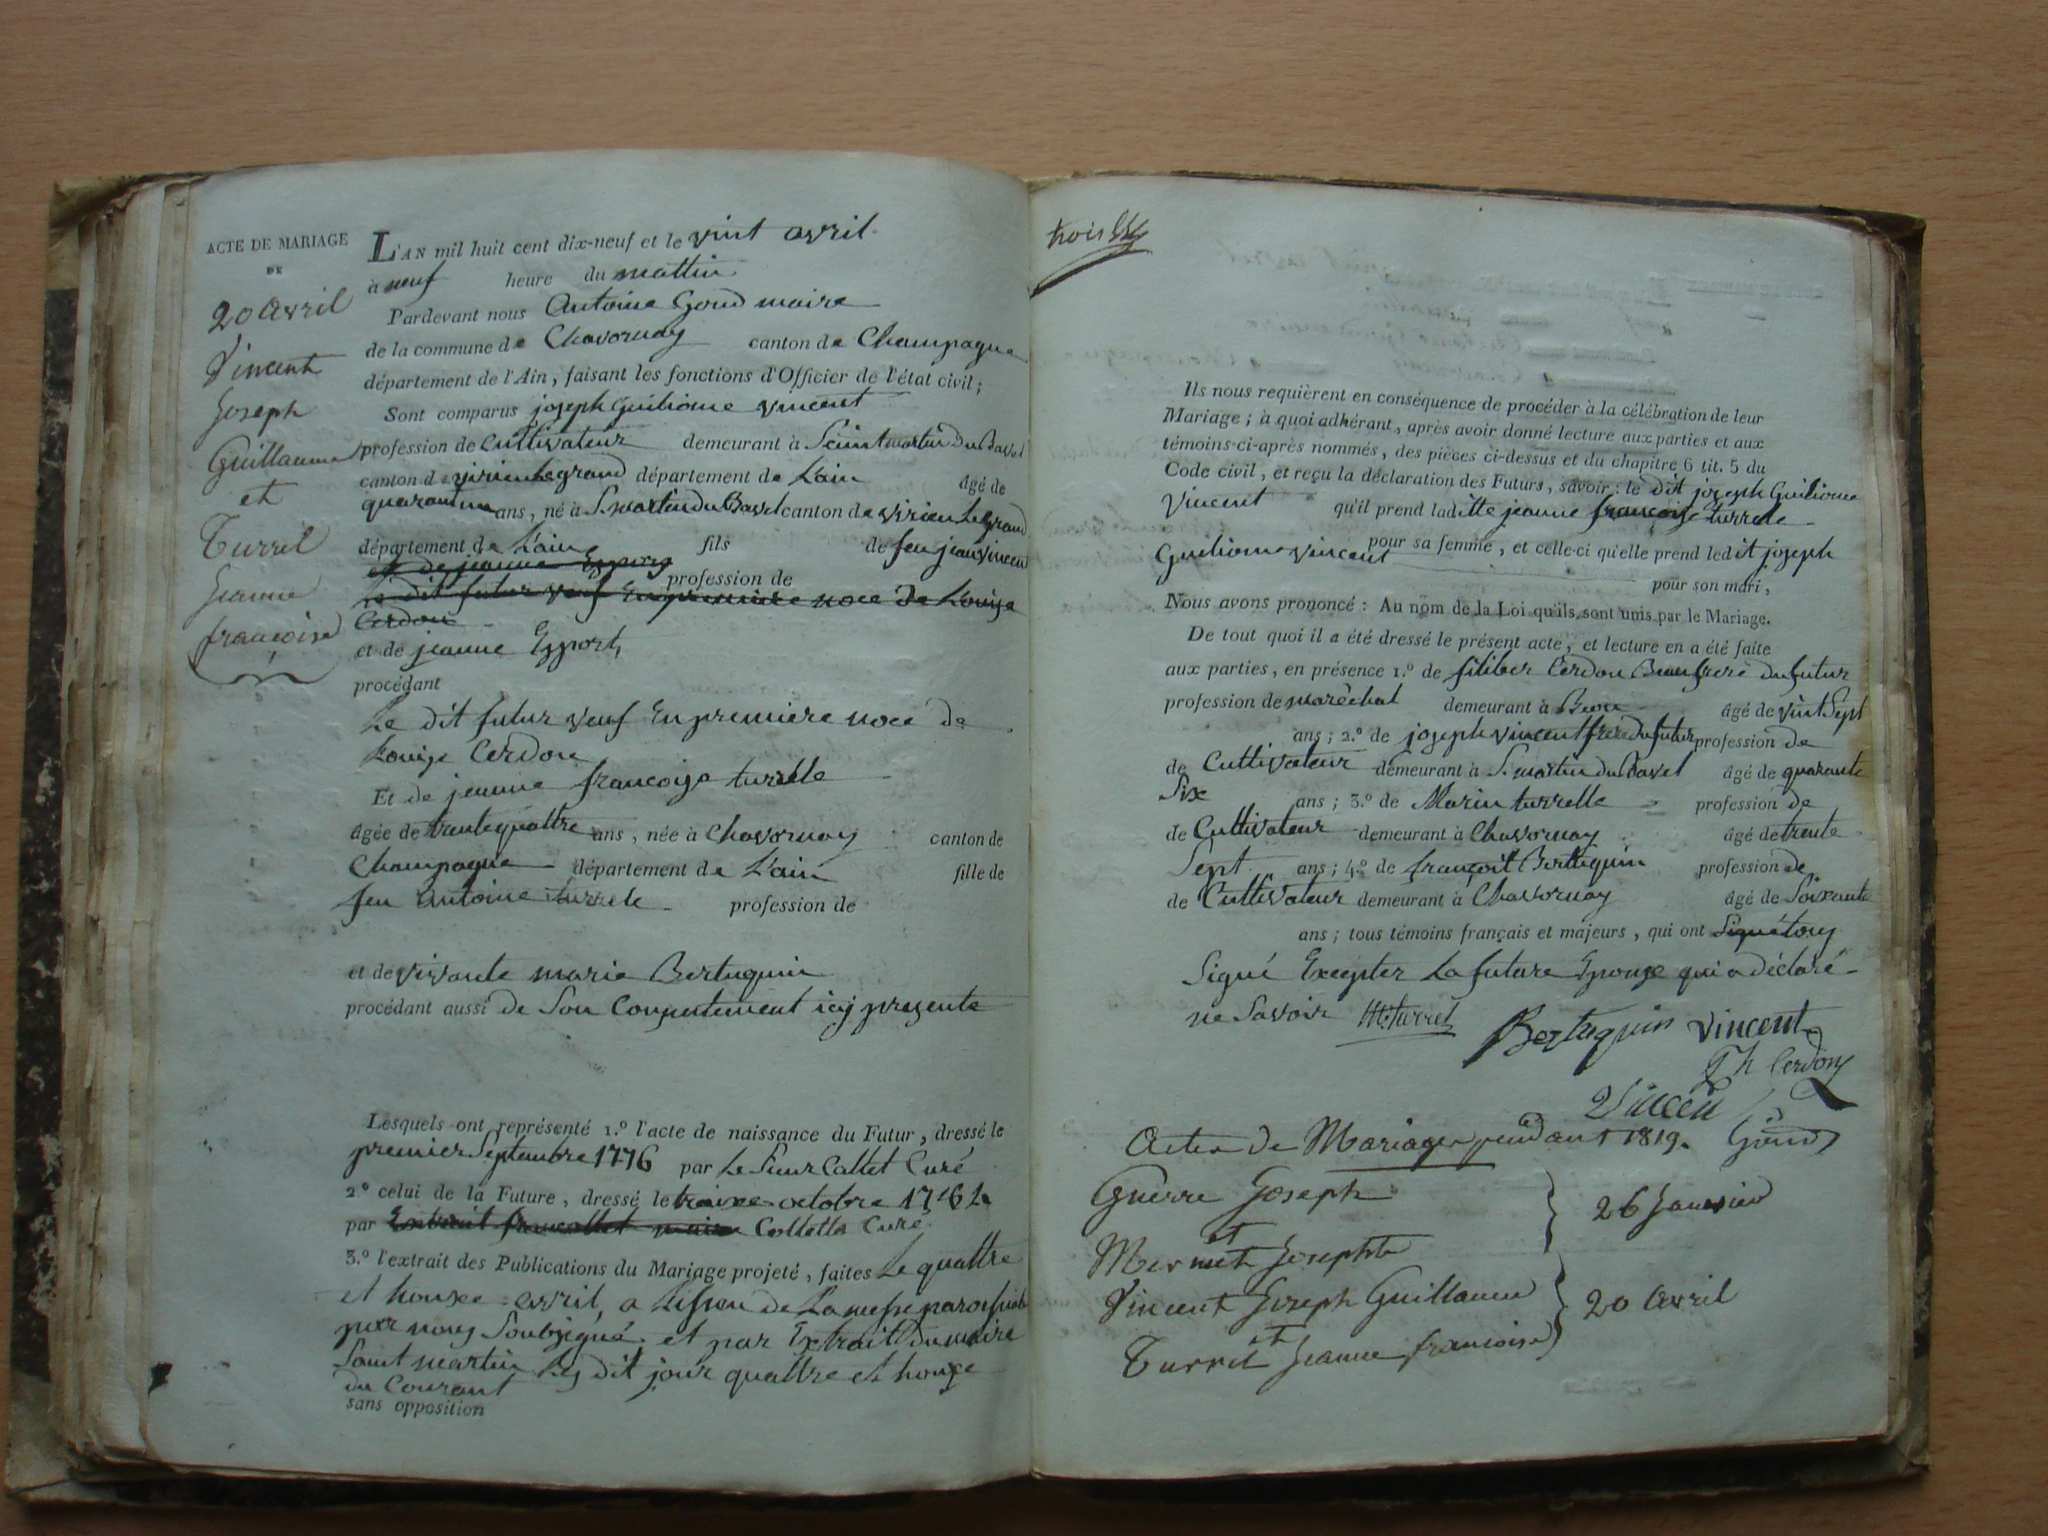 ACTE DE MARIAGE
DE
20 avril
Vincent
Joseph
Guillaume
et
Turril
Jeanne
françoise
L'AN mil huit cent dix-neuf et le vint avril
à neuf heure du mattin
Pardevant nous Antoine Goud maire
de la commune de Chavornay canton de Champagne
département de l'Ain, faisant les fonctions d'Officier de l'état civil;
Sont comparus joseph Guiliome vincent
profession de Cultivateur demeurant à Seint martin du Bavel
canton de virieu Le grand département de L'ain âgé de
ans, né à S. martin du Bavel canton de virieu Le Grand
département de L'ain fils de feu jean vincen
et de jeanne
profession de
Le dit futur veuf En premiere noce De Louise
Cerdon
et de jeanne
procédant
Le dit futur veuf En premiere noce de
Louise Cerdon
Et de jeanne francoise turrelle
âgée de trante quattre ans, née à Chavornay canton de
Champagne département de L'ain fille de
feu Antoine turrele profession de
et de vivante marie Bertuquin
procédant aussi de Son Consentement icy presente
Lesquels ont représenté 1.º l'acte de naissance du Futur, dressé le
premier Septembre 1776 par Le Sieur Cattet Curé
2º celui de la Future, dressé le octobre
par Curé
3.º l'extrait des Publications du Mariage projeté, faites Le quattre
et honze avril, a de La messe
par nous Soubsigné et par Extrait du maire
Saint martin les dit jour quattre et honze
du Courant
sans opposition
trois
Ils nous requièrent en conséquence de procéder à la célébration de leur
Mariage; à quoi adhérant, après avoir donné lecture aux parties et aux
témoins ci-après nommés, des pièces ci-dessus et du chapitre 6 tit. 5 du
Code civil, et reçu la déclaration des Futurs, savoir: le dit joseph Guiliome
Vincent qu'il prend laditte jeanne francoise turrele
pour sa femme, et celle-ci qu'elle prend ledit joseph
Guiliome vincent pour son mari,
Nous avons prononcé: Au nom de la Loi qu'ils sont unis par le Mariage.
De tout quoi il a été dressé le présent acte, et lecture en a été faite
aux parties, en présence 1.º de filiber Cerdon Beaufrere du futur
profession de maréchal demeurant à Beon âgé de vint Sept
ans; 2.º de joseph vincent frere du futur profession de
de Cultivateur demeurant à S. martin du Bavel âgé de quarante
Six ans; 3.º de Marin turrelle profession de
de Cultivateur demeurant à Chavornay âgé de trente
Sept ans; 4.º de françoit Bertuquin profession de
de Cultivateur demeurant à Chavornay âgé de Soixante
ans; tous témoins français et majeurs, qui ont Signé tous
Signé Excepter La future Epouse qui a déclaré
ne Savoir M turrel Bertuquin vincent
Ph Cerdon
Vincen
Actes de Mariages pendant 1819. Goud
Guerre Joseph
et 26 Janvier
Mermet Josephte
Vincent Joseph Guillaume
et 20 avril
Turril Jeanne françoise